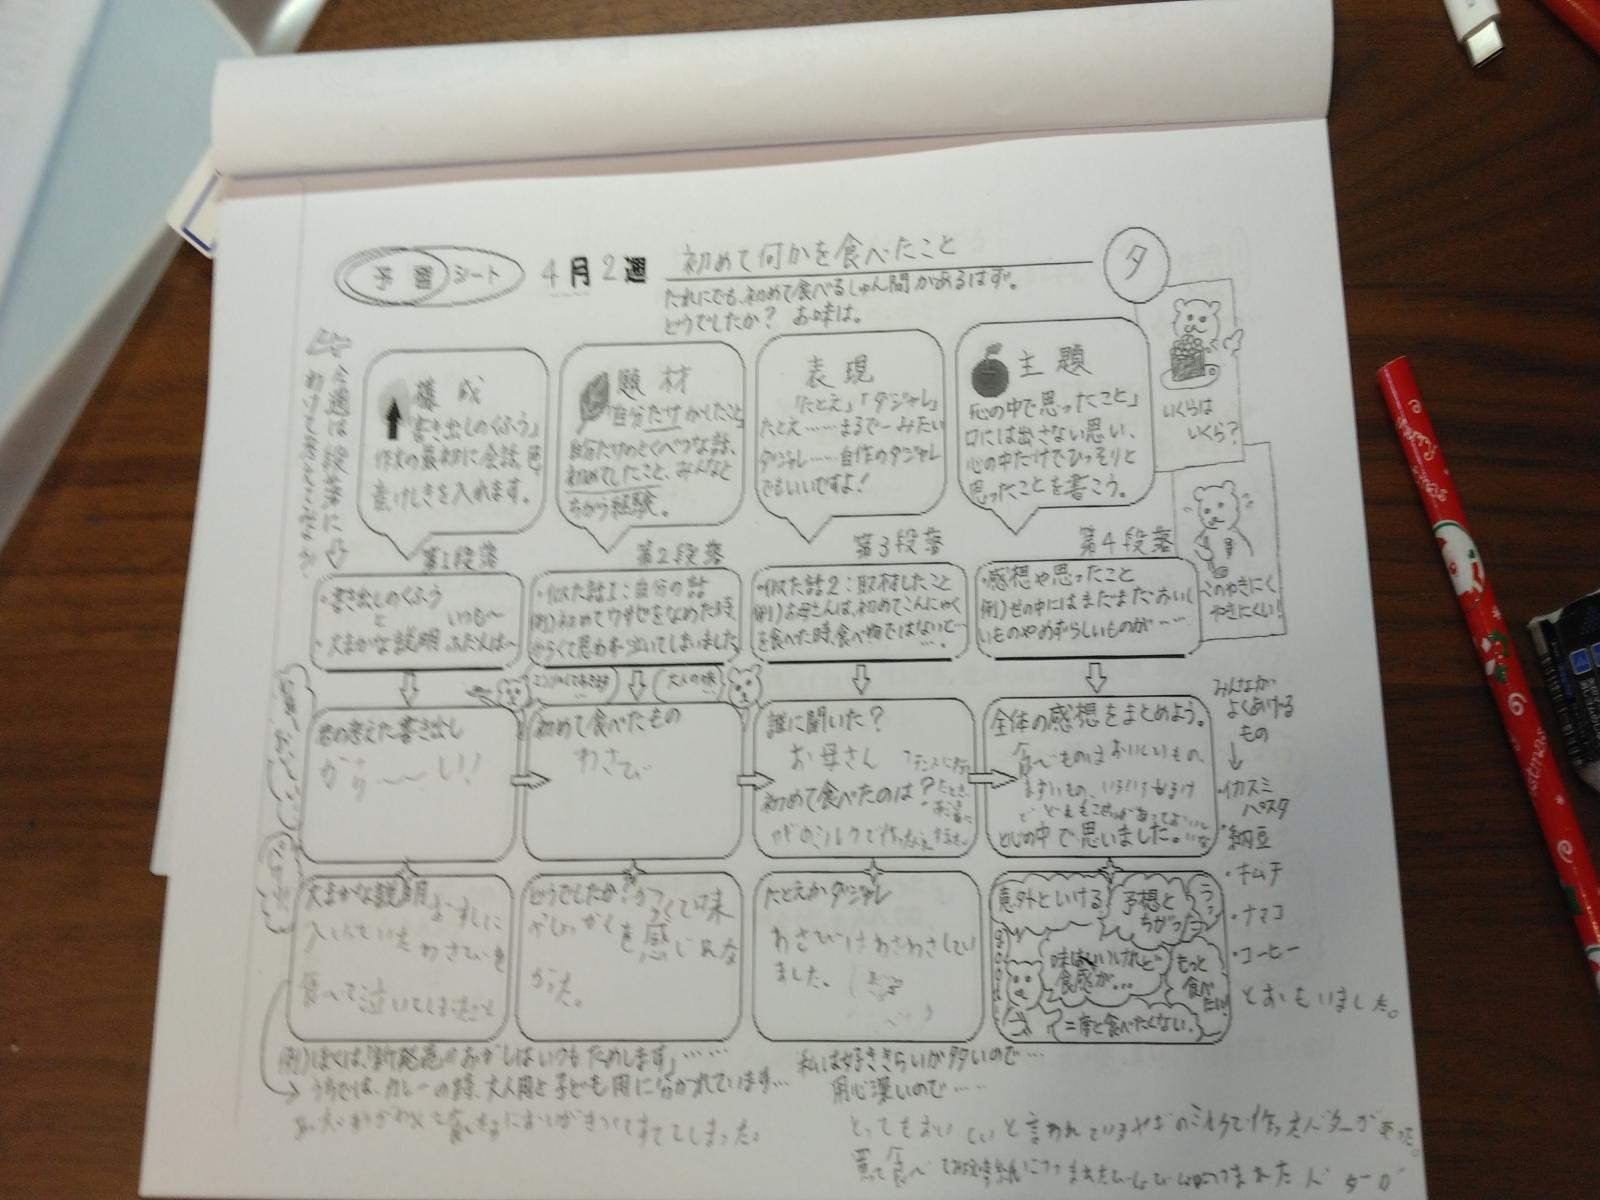 予習シート 4月2週 初めて何かを食べたこと タ
だれにでも、初めて食べるしゅん間があるはず。
どうでしたか? お味は。
今週は段落に
わけて
構成
「書き出しのくふう」
作文の最初に会話、
景けしきを入れます。
題材
「自分だけがしたこと
自分だけのとくべつな話、
初めてしたこと、みんなと
ちがう経験。
表現
「たとえ」「ダジャレ」
たとえ……まるで―みたい
ダジャレ……自作のダジャレ
でもいいですよ!
主題
「心の中で思ったこと」
口には出さない思い、
心の中だけでひっそりと
思ったことを書こう。
いくらは
いくら?
このやきにく
やきにくい!
第1段落
・書き出しのくふう
と いつも〜
・大まかな説明 ふだんは〜
第2段落
・似た話1:自分の話
例)初めてワサビをなめた時、
からくて思わず泣いてしまいました
第3段落
・似た話2:取材したこと
例)お母さんは、初めてこんにゃく
を食べた時、食べ物ではないと…
第4段落
・感想や思ったこと
例)世の中にはまだまだおいし
いものやめずらしいものが……
大人の味
君の考えた書き出し
から〜〜い!
初めて食べたもの
わさび
誰に聞いた?
お母さん
初めて食べたのは?
やぎのミルクで作ったバター
全体の感想をまとめよう。
食べものはおいしいもの、
まずいもの、いろいろあるけ
と心の中で思いました。
みんなが
よくあげる
もの
↓
・イカスミ
パスタ
・納豆
・キムチ
・ナマコ
・コーヒー
大まかな説明 おすしに
入っていたわさびを
食べて泣いてしまったこと
どうでしたか? からくて味
を感じな
かった。
たとえかダジャレ
わさびはわさわさしてい
ました。
意外といける
予想と
ちがった
味はいいけれど
食感が…
もっと
食べたい!
二度と食べたくない。
とおもいました。
例)ぼくは、「新発売のおかしはいつもためします」……
うちでは、カレーの時、大人用と子ども用に分かれています…
私は好ききらいが多いので…
用心深いので……
においがきつくてすててしまった。
とってもおいしいと言われているやぎのミルクで作ったバターがあった。
買って食べて